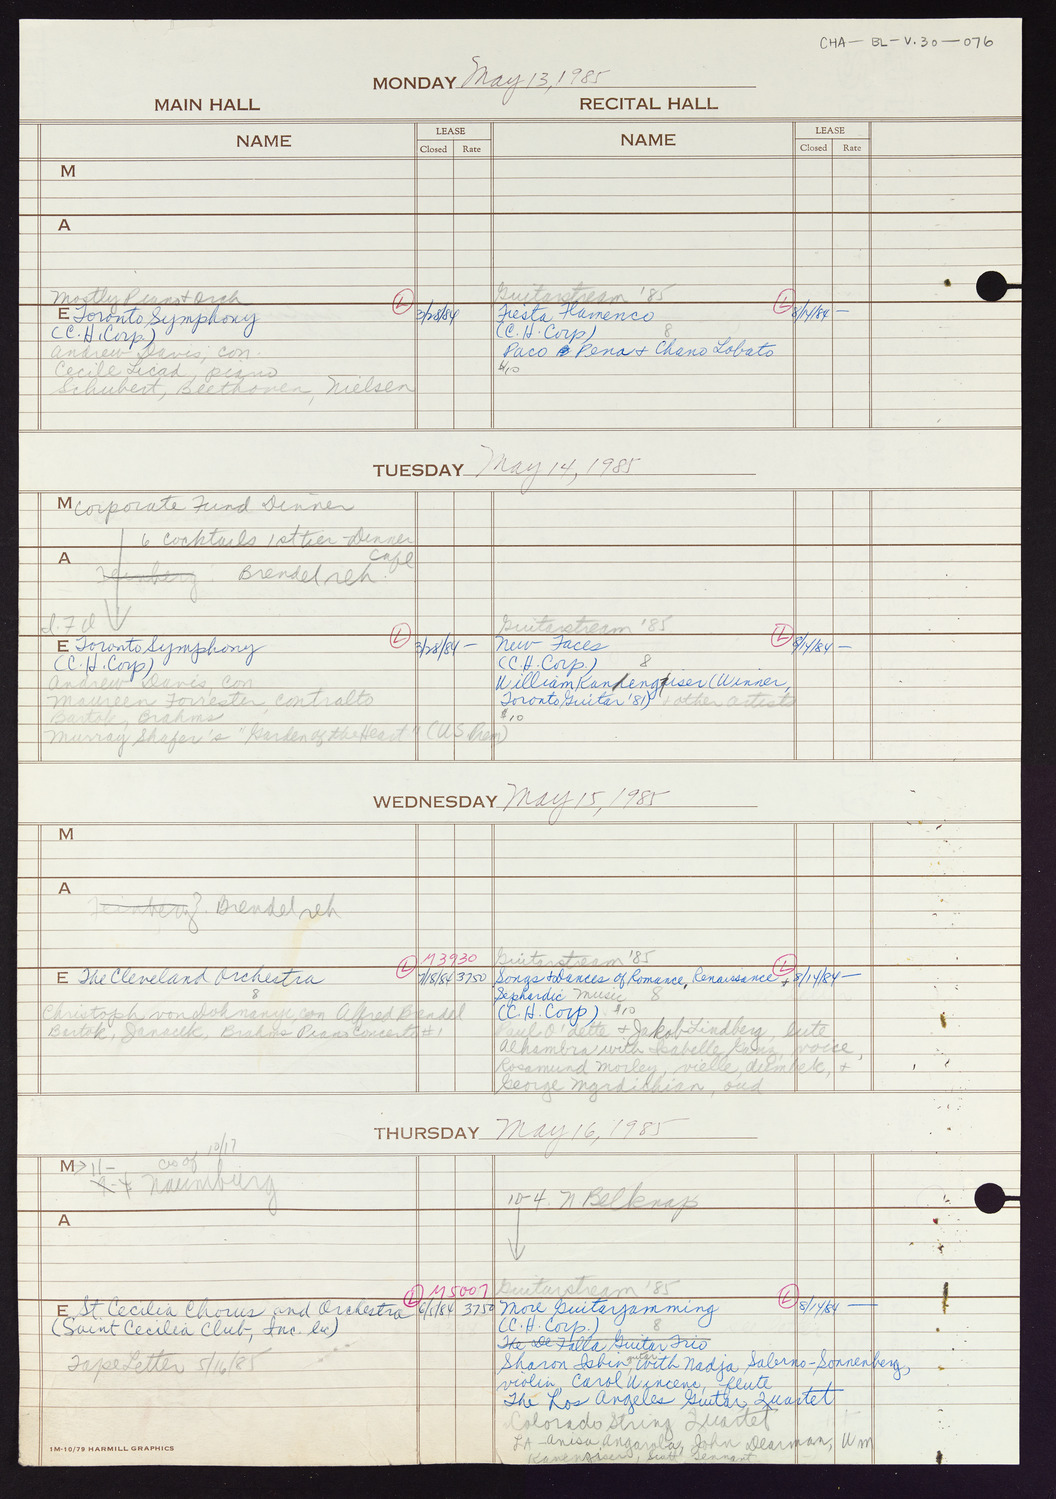 CHA-BL-V.30-076
MONDAY May 13, 1985
MAIN HALL
RECITAL HALL
NAME
LEASE
Closed Rate
NAME
LEASE
Closed Rate
M
A
Mostly Piano + Orch
E Toronto Symphony
L 3/28/84
(C.H. Corp)
Andrew Davis, con.
Cecile Licad, piano
Schubert, Beethoven, Nielsen
Guitarstream '85
Fiesta Flamenco
L 8/14/84 —
(C.H. Corp) 8
Paco Pena + Chano Lobato
$10
TUESDAY May 14, 1985
M Corporate Fund Dinner
6 Cocktails 1st tier - Dinner
Cafe
A
Feinberg Brendel reh.
E Toronto Symphony
L 3/28/84 —
(C.H. Corp)
Andrew Davis, con
Maureen Forrester, contralto
Bartok, Brahms
Murray Shafer's "Garden of the Heart" (US Prem)
Guitarstream '85
New Faces
L 8/14/84 —
(C.H. Corp.) 8
William Kanhengiser (Winner,
Toronto Guitar '81) + other artists
$10
WEDNESDAY May 15, 1985
M
A
Feinberg Brendel reh
M3930
E The Cleveland Orchestra
L 7/18/84 3750
8
Christoph von Dohnanyi, con Alfred Brendel
Bartok, Janacek, Brahms Piano Concerto #1
Guitarstream '85
Songs + Dances of Romance, Renaissance +
L 8/14/84 —
Sephardic Music 8
(C.H. Corp) $10
Paul O'dette + Jakob Lindberg, lute
Alhambra with Isabelle Ganz, voice,
Rosamund Morley, vielle, dumbek, +
George Mgrdichian, oud
THURSDAY May 16, 1985
M > 11- as of 10/17
Naumburg
10-4. N Belknap
A
M5007
E St Cecilia Chorus and Orchestra
L 6/1/84 3750
(Saint Cecilia Club, Inc. lic)
Tape Letter 5/16/85
Guitarstream '85
More Guitarjamming
L 8/14/84 —
(C.H. Corp.) 8
The De Falla Guitar Trio
Sharon Isbin, guitar with Nadja Salerno-Sonnenberg,
violin, Carol Wincenc, flute
The Los Angeles Guitar Quartet
Colorado String Quartet
LA - Anisa Angarola, John Dearman, Wm
Kanengiser, Scott Tennant
1M-10/79 HARMILL GRAPHICS